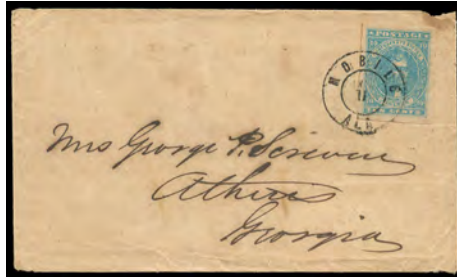 POSTAGE
MOBILE
11
ALA
Mrs George P. Scriven
Athens
Georgia